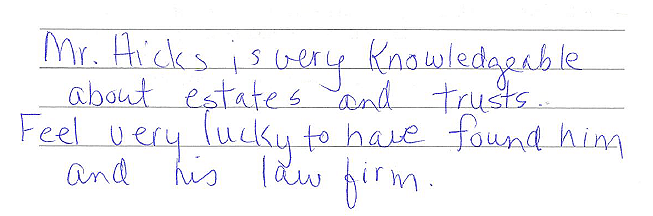 Mr. Hicks is very knowledgeable
about estates and trusts.
Feel very lucky to have found him
and his law firm.